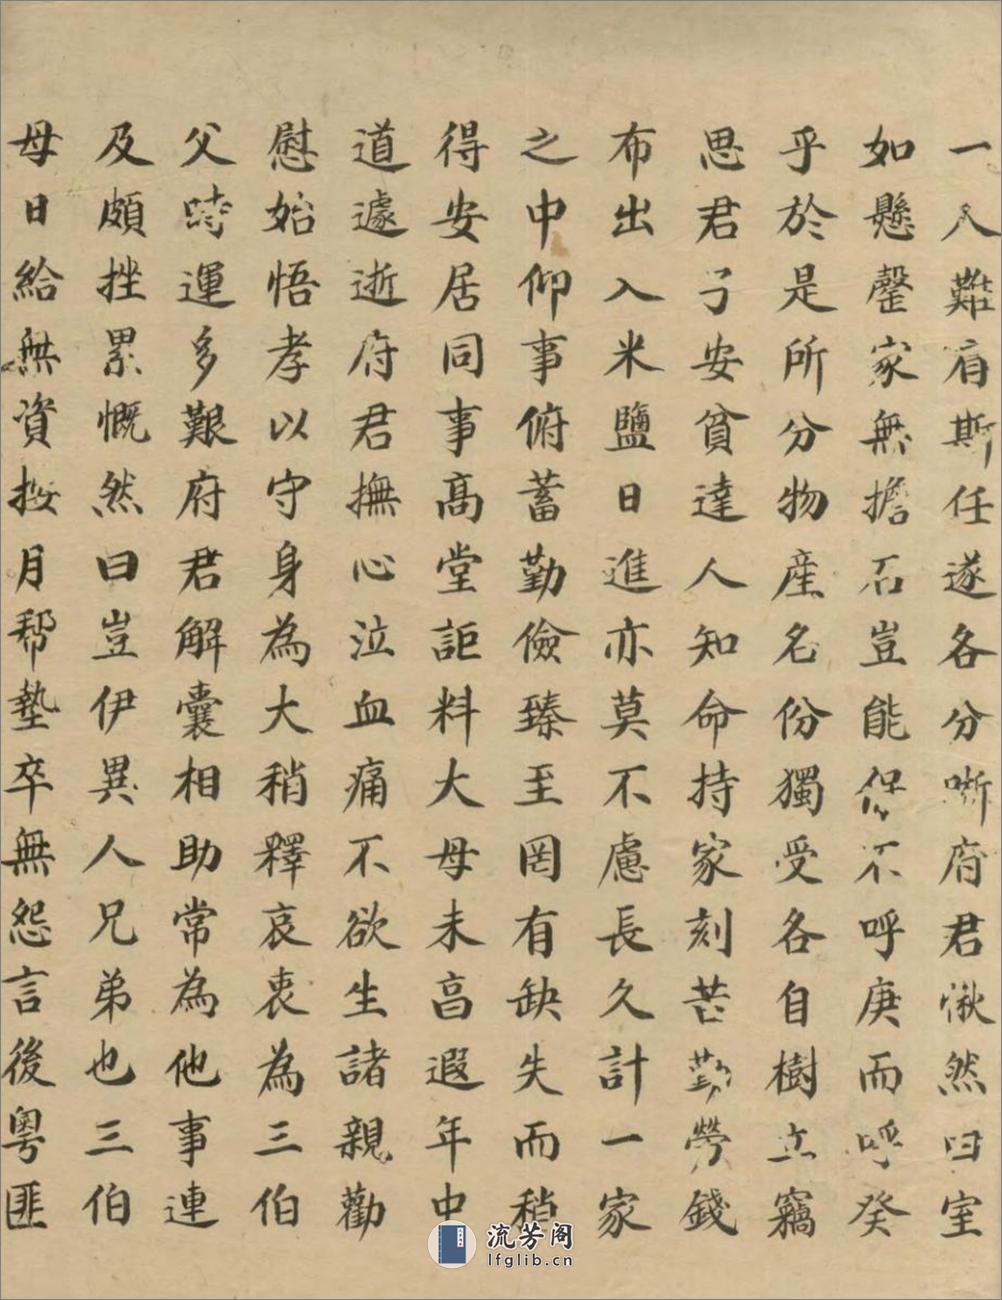 一人難肩斯任遂各分噺府君愀然曰室
如懸罄家無擔石豈能保不呼庚而呼癸
乎於是所分物產名份獨受各自樹立竊
思君子安貧達人知命持家刻苦勤勞錢
布出入米鹽日進亦莫不慮長久計一家
之中仰事俯蓄勤儉臻至罔有缺失而稍
得安居同事高堂詎料大母未亯遐年中
道遽逝府君撫心泣血痛不欲生諸親勸
慰始悟孝以守身為大稍釋哀衷為三伯
父時運多艱府君解囊相助常為他事連
及頗挫累慨然曰豈伊異人兄弟也三伯
母日給無資按月帮墊卒無怨言後粵匪
流芳阁
lfglib.cn